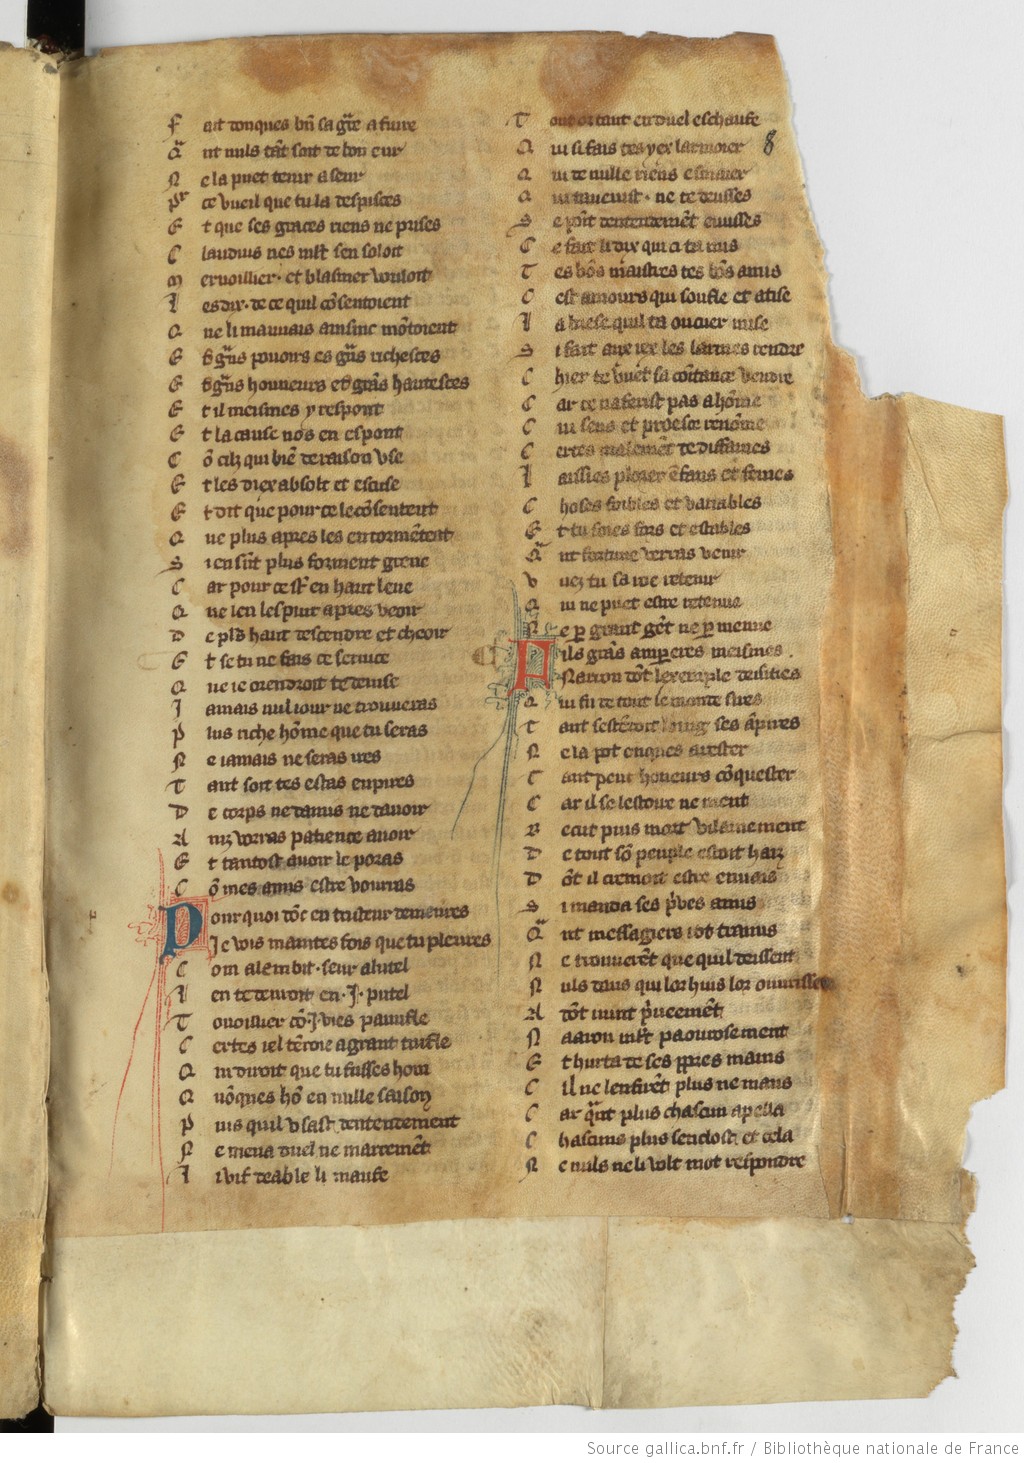 F ait donques bn sa gͣce a fuire
Qͣ nt nuls tāt soit de bon eur
N e la puet tenir a seur
Pr ce vueil que tu la despises
E t que ses graces riens ne prises
C laudius nes mlt sen soloit
M ervoillier · et blasmer vouloit
L es dix · de ce quil cōsentoient
Q ue li mauuais ainsinc mōtoient
E s gͣns pouoirs es gͣns richesces
E s gͣns honneurs es gͣns hautesces
E t il meismes y respont
E t la cause nos en espont
C ō cilz qui biē de raison vse
E t les diex absolt et escuse
E t dit que pour ce le cōsentent
Q ue plus apres les en tormētent
S i en sūt plus forment greue
C ar pour ce st̄ en haut leue
Q ue len les puit apres veoir
D e pls haut descendre et cheoir
E t se tu me fais ce seruice
Q ue ie ci endroit te deuise
J amais nul iour ne trouueras
P lus riche hōme que tu seras
N e iamais ne seras ires
T ant soit tes estas enpires
D e corps ne damis ne dauoir
A inz vorras patience auoir
E t tantost auoir le poras
C ō mes amis estre vourras
Pour quoi dōc en tristeur demeures
Je vois maintes fois que tu pleures
C om alembit · seur alutel
L en te deuroit en · J · putel
T ooillier cō · J · vies panufle
C ertes iel tēroie a grant trufle
Q ui diroit que tu fusses hom
Q uōques hō en nulle saison
P uis quil vsast dentendement
N e mena duel ne marremēt
L i vif deable li maufe
T ont ton tant en duel eschaufe
Q ui si fais tes yex larmoier
8
Q ui de nulle riens esmaier
Q ui tauenist · ne te deusses
S e poīt dentendemēt eusses
C e fait li dix qui ci ta mis
T es bōs maistres tes bōs amis
C est amours qui soufle et atise
L a brese quil ta ou cuer mise
S i fait aux iex les larmes rendre
C hier te vuēt sa cōitance vendre
C ar ce naferist pas a hōme
C ui sens et proesce renōme
C ertes malemēt te diffames
L aissies plorer ēfans et femes
C hoses foibles et variables
E t tu soies fors et estables
Qͣ nt fortune verras venir
V uez tu sa roe retenir
Q ui ne puet estre retenue
N e p grant gēt ne p menue
Cils grās amperes meismes ·
Nairon dōt lexemple deismes
Q ui fu de tout le monde sires
T ant sestēdoit loing ses āpires
N e la pot onques arester
T ant peut honeurs cōquester
C ar il se lestoire ne ment
R ecut puis mort vilainement
D e tout sō peuple estoit haiz
D ōt il cremoit estre enuais
S i manda ses pͥues amis
Qͣ nt messagiers iot tramis
N e trouuerēt que quil deissent
N uls daus qui lor huis lor ouurissent
A dōt uint pͥueemēt
N aaron mlt paourosement
E t hurta de ses pͥpres mains
C il ne len furēt plus ne mains
C ar qͣnt plus chascun apella
C hascuns plus senclost et cela
N e nuls ne li volt mot respondre
Source gallica.bnf.fr / Bibliothèque nationale de France